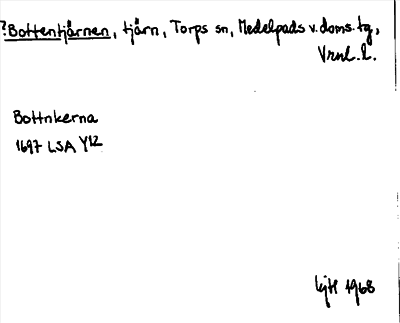 ?Bottentjärnen, tjärn, Torps sn, Medelpads v. doms. tg,
Vrnl. l.
Bottnkerna
1697 LSA Y12
1968